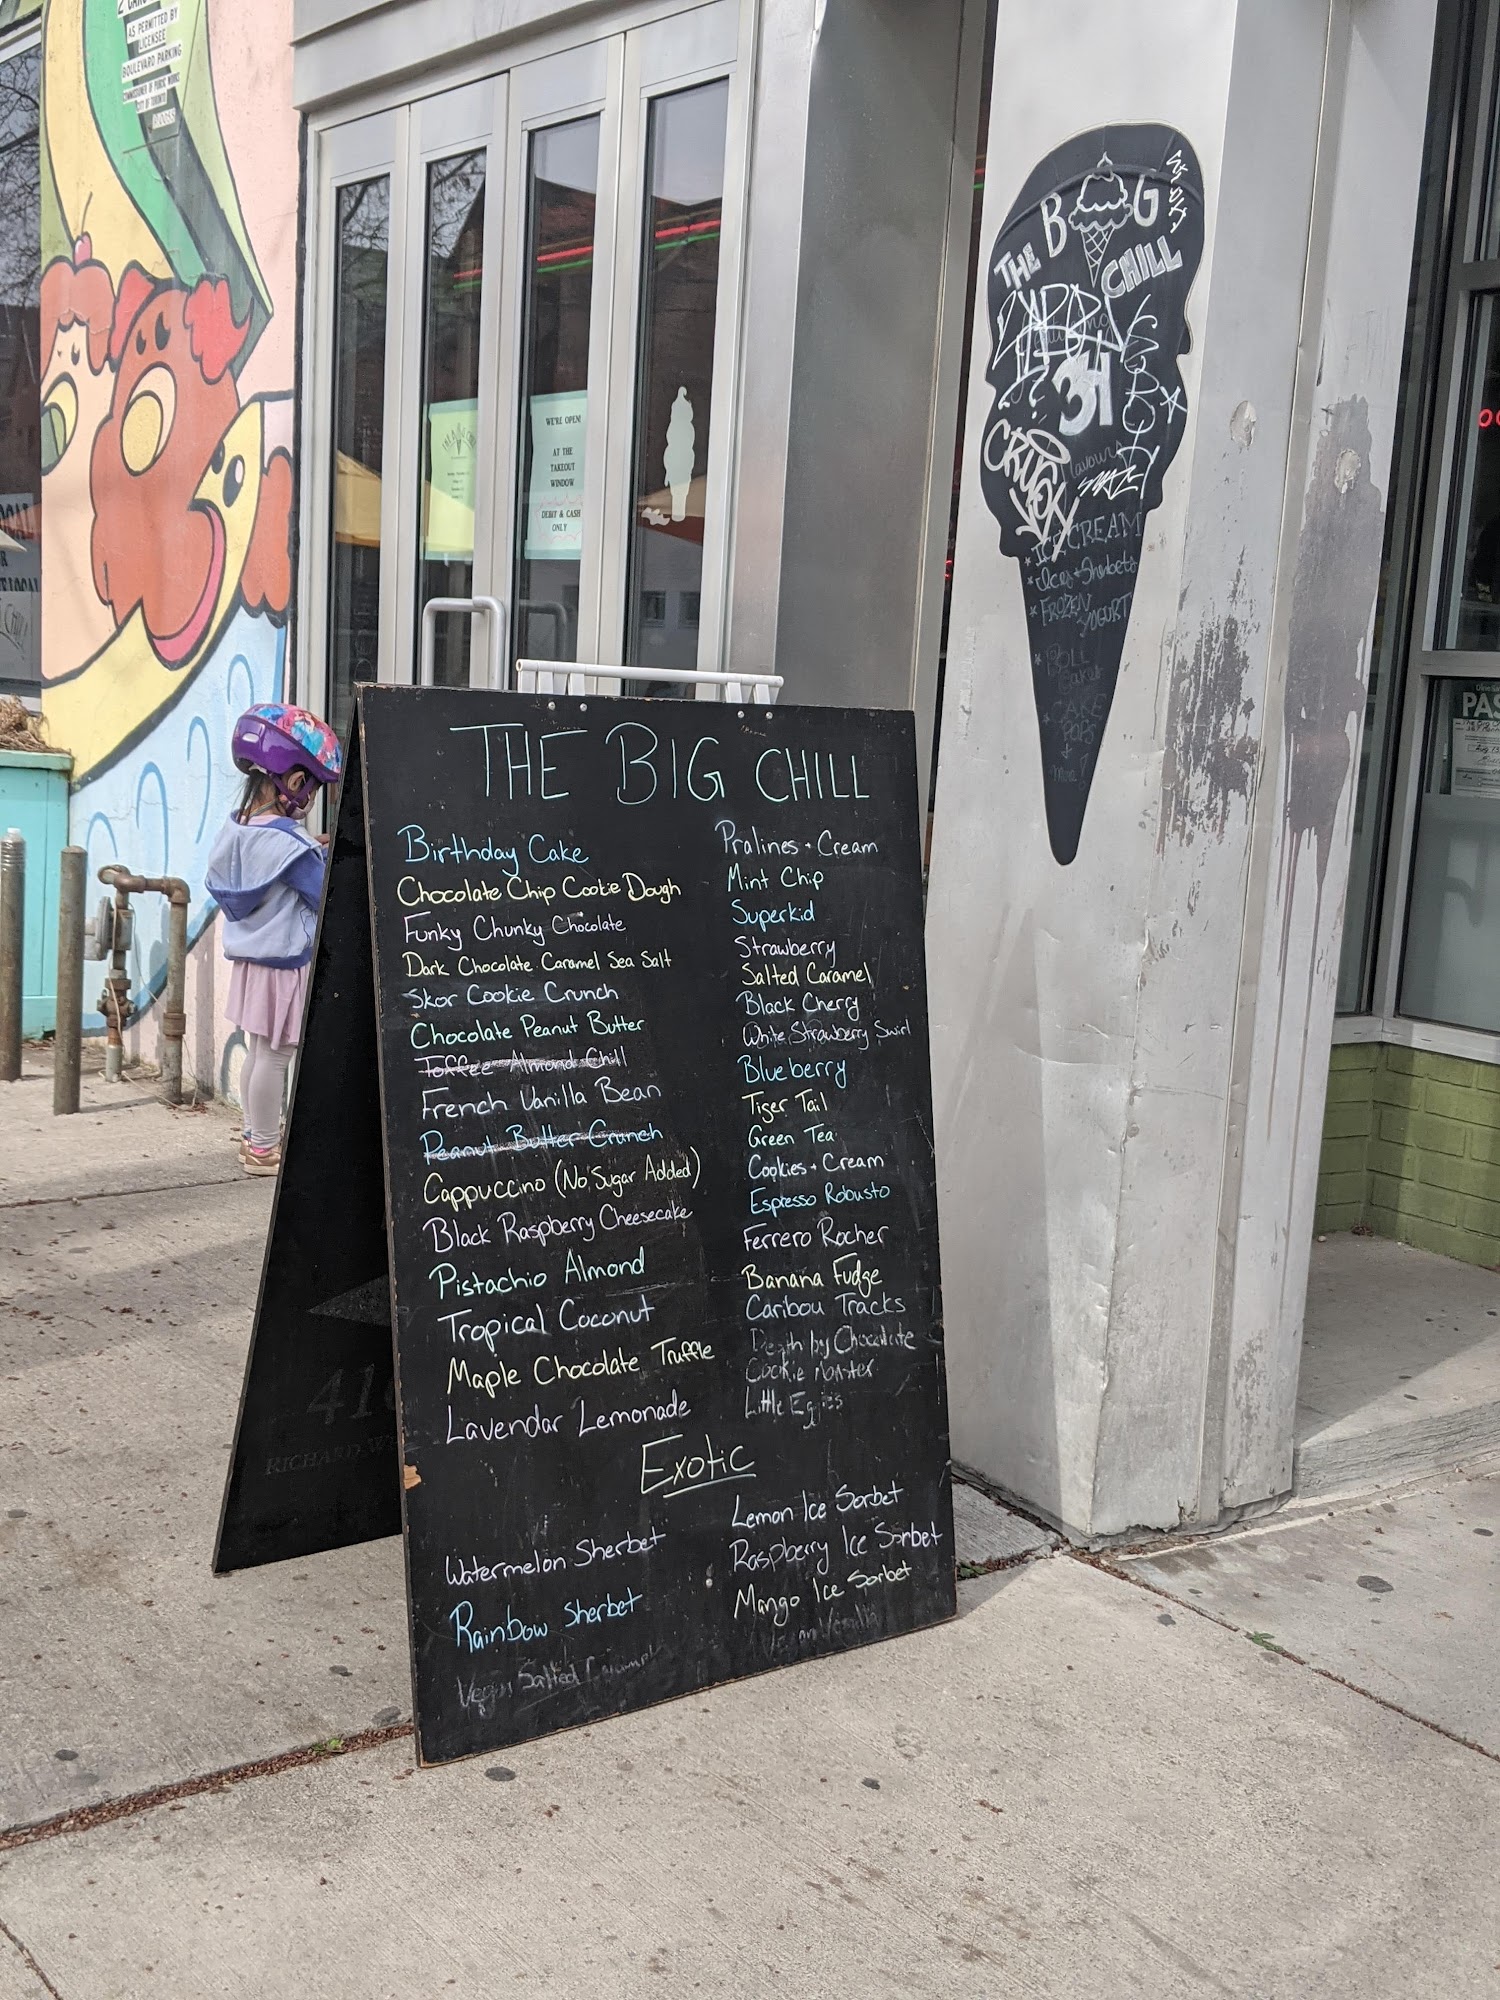 AS PERMITTED BY
LICENSEE
BOULEVARD PARKING
COMMISSIONER OF PUBLIC WORKS
CITY OF TORONTO
WE'RE OPEN!
AT THE
TAKEOUT
WINDOW
DEBIT & CASH
ONLY
THE BIG
CHILL
34
ICE CREAM
* Ices + Sherbets
* FROZEN
YOGURT
* ROLL
Cakes
* CAKE
POPS
+
more!
PAS
THE BIG CHILL
Birthday Cake
Chocolate Chip Cookie Dough
Funky Chunky Chocolate
Dark Chocolate Caramel Sea Salt
Skor Cookie Crunch
Chocolate Peanut Butter
Toffee Almond Chill
French Vanilla Bean
Peanut Butter Crunch
Cappuccino (No Sugar Added)
Black Raspberry Cheesecake
Pistachio Almond
Tropical Coconut
Maple Chocolate Truffle
Lavendar Lemonade
Pralines + Cream
Mint Chip
Superkid
Strawberry
Salted Caramel
Black Cherry
White Strawberry Swirl
Blueberry
Tiger Tail
Green Tea
Cookies + Cream
Espresso Robusto
Ferrero Rocher
Banana Fudge
Caribou Tracks
Death by Chocolate
Cookie Monster
Little Eggies
Exotic
Watermelon Sherbet
Rainbow Sherbet
Vegan Salted Caramel
Lemon Ice Sorbet
Raspberry Ice Sorbet
Mango Ice Sorbet
Vegan Vanilla
416